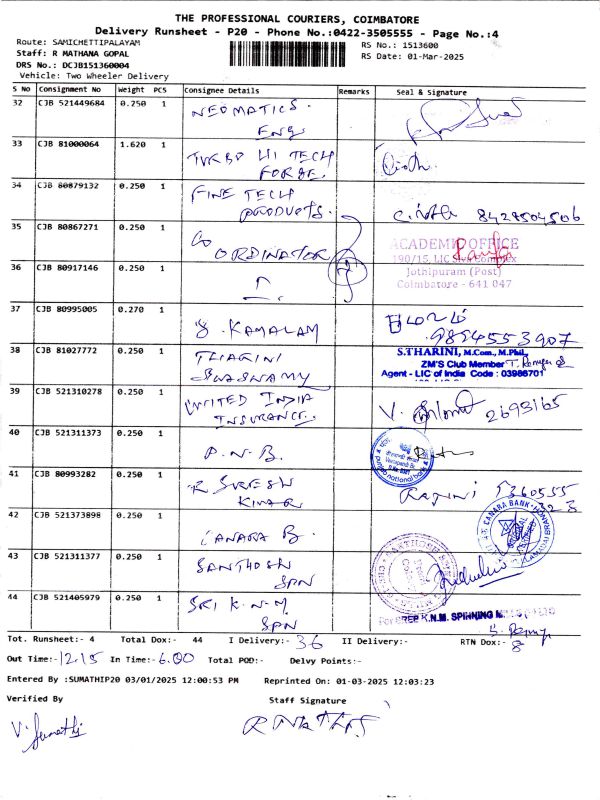 THE PROFESSIONAL COURIERS, COIMBATORE
Delivery Runsheet - P20 - Phone No.:0422-3505555 - Page No.:4
Route: SAMICHETTIPALAYAM
Staff: R MATHANA GOPAL
DRS No.: DCJB151360004
Vehicle: Two Wheeler Delivery
RS No.: 1513600
RS Date: 01-Mar-2025
S No Consignment No Weight PCS Consignee Details Remarks Seal & Signature
32 CJB 521449684 0.250 1 NEOMATICS.
ENG
33 CJB 81000064 1.620 1 TURBO HI TECH
FORGE.
34 CJB 80879132 0.250 1 FINE TECH
PRODUCTS. 8428504506
35 CJB 80867271 0.250 1 CO
ORDINATOR
ACADEMIC OFFICE
190/15, LIC Siva Complex
Jothipuram (Post)
Coimbatore - 641 047
36 CJB 80917146 0.250 1
37 CJB 80995005 0.270 1 S. KAMALAM
9894553907
38 CJB 81027772 0.250 1 THARINI
S.THARINI, M.Com., M.Phil.,
ZM'S Club Member
Agent - LIC of India Code : 03986701
39 CJB 521310278 0.250 1 UNITED INDIA
INSURANCE. V. 2693165
40 CJB 521311373 0.250 1 P.N.B.
punjab national bank
41 CJB 80993282 0.250 1 R. SURESH
KUMAR Ragini
42 CJB 521373898 0.250 1 CANARA B.
CANARA BANK
43 CJB 521311377 0.250 1 SANTHOSH
SPN
44 CJB 521405979 0.250 1 SRI K.N.M.
SPN
For SREE K.N.M. SPINNING
Tot. Runsheet:- 4 Total Dox:- 44 I Delivery:- 36 II Delivery:- RTN Dox:- 8
Out Time:- 12.15 In Time:- 6.00 Total POD:- Delvy Points:-
Entered By :SUMATHIP20 03/01/2025 12:00:53 PM Reprinted On: 01-03-2025 12:03:23
Verified By Staff Signature
V. Sumathi